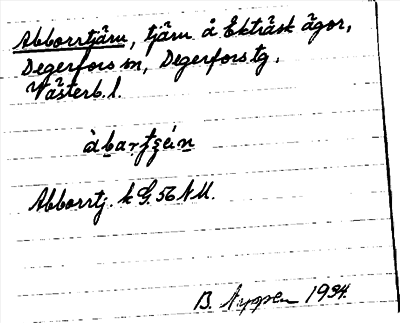 Abborrtjärn, tjärn å Ekträsk ägor,
Degerfors sn, Degerfors tg,
Västerb. l.
Abborrtj. k G. 56 NU.
B. Nyppen 1934.